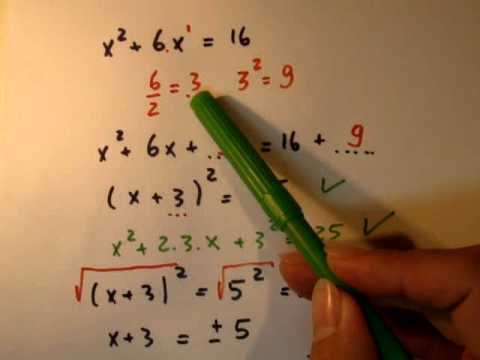 x² + 6.x¹ = 16
6/2 = 3 3² = 9
x² + 6x + .. = 16 + 9
(x + 3)² =
x² + 2.3.x + 3² = 25
√(x+3)² = √5² =
x+3 = ± 5